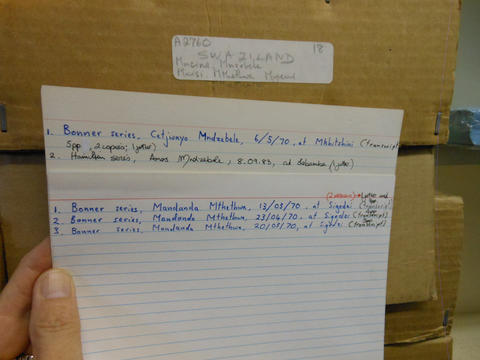 A2760 18
SWAZILAND
Mncina Mndzebele
Mthethwa
1. Bonner series, Cetjwayo Mndzebele, 6/5/70, at Mhbitchini (transcript
5pp, 2 copies;
2. Hamilton series, Amos Mndzebele, 8.09.83, at
1. Bonner series, Mandanda Mthethwa, 13/03/70, at Sigodai (transcript
2. Bonner series, Mandanda Mthethwa, 23/04/70, at Sigodai (transcript)
3. Bonner series, Mandanda Mthethwa, 20/05/70, at Sigodai (transcript)